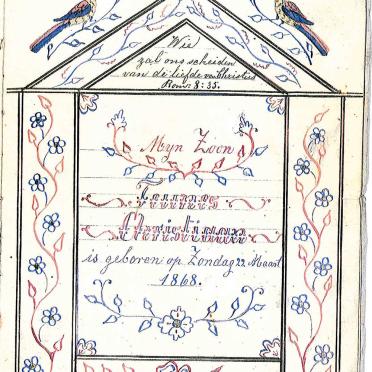 Wie
zal ons scheiden
van de liefde van Christus
Rom: 8:35.
Myn Zoon
is geboren op Zondag 22 Maart
1868.